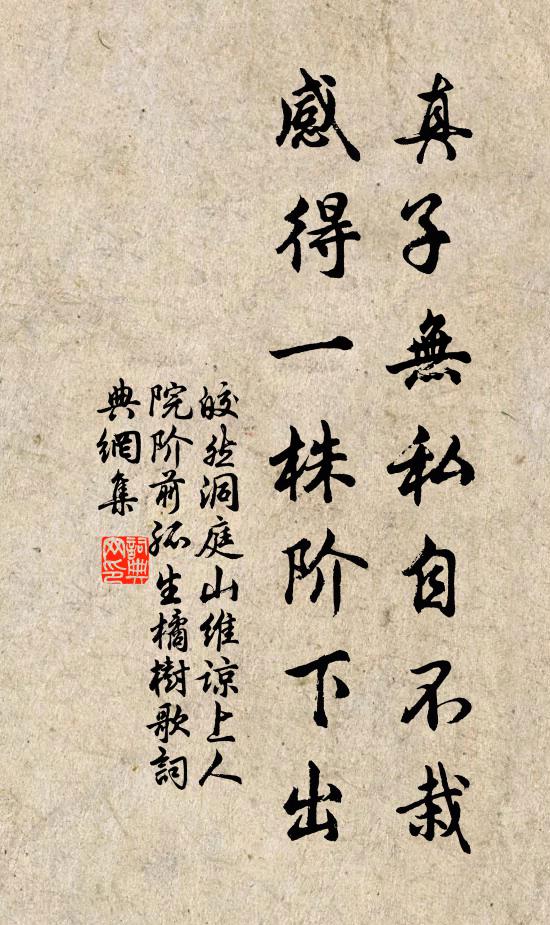 真子無私自不栽
感得一株阶下出
皎然洞庭山维谅上人
院阶前孤生橘樹歌詞
典網集
詞典
网印